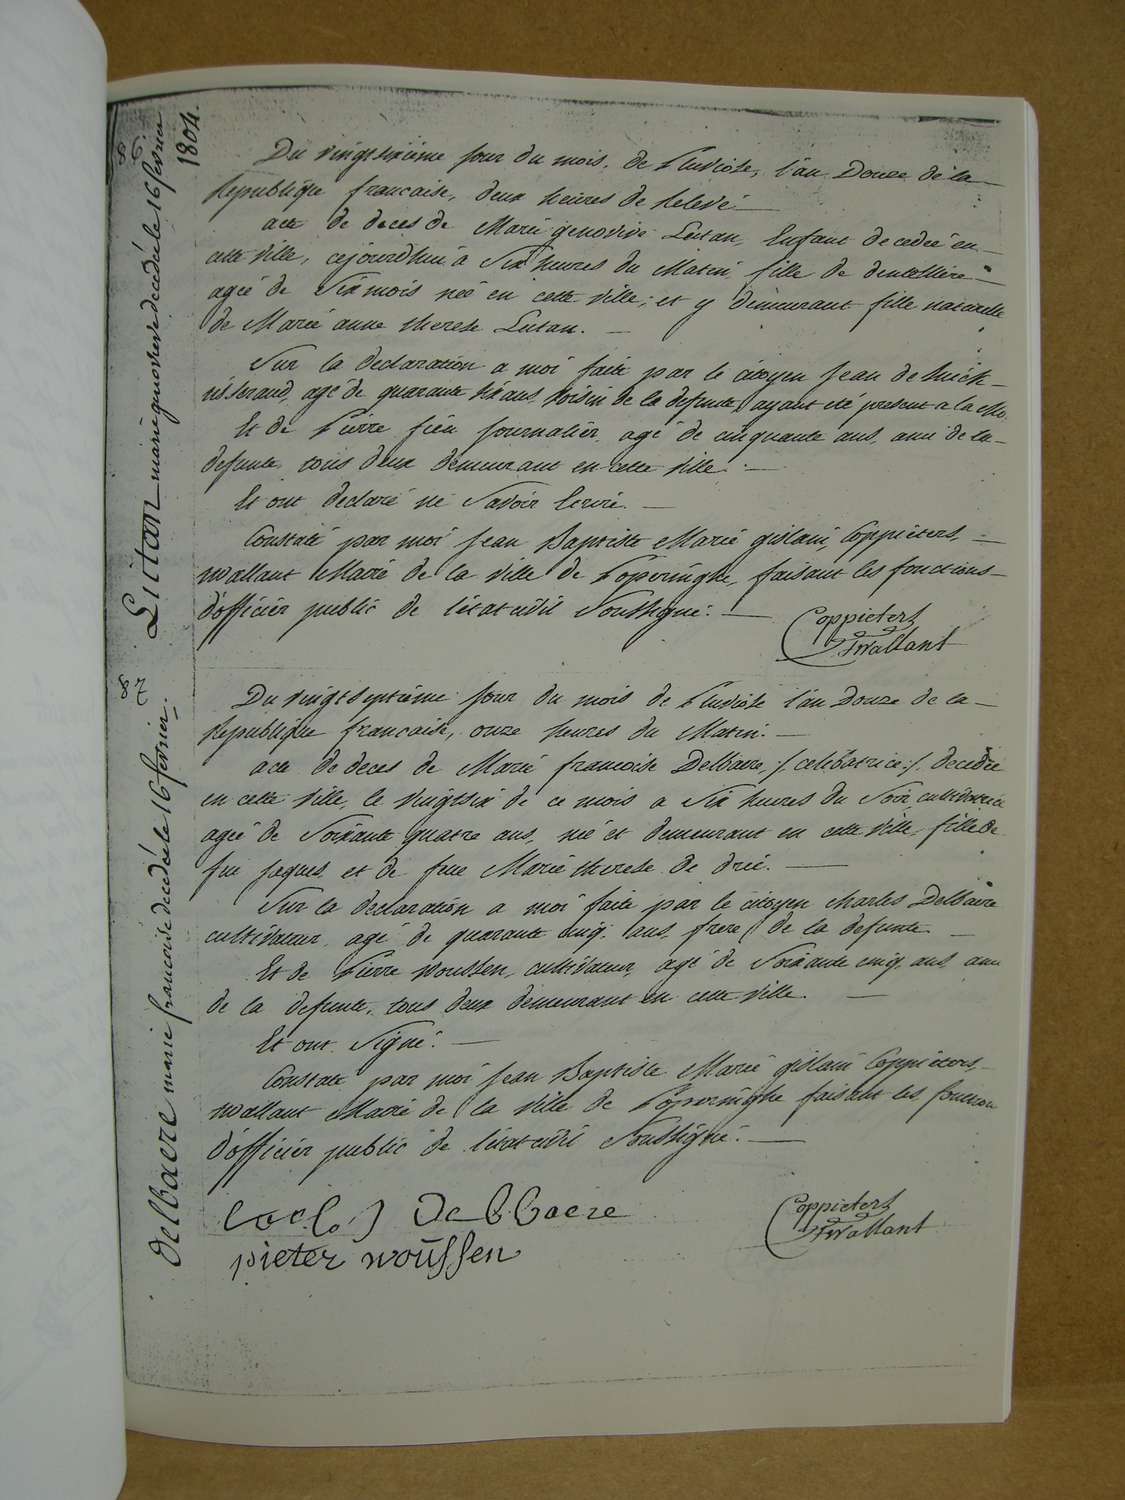 86.
Luttan marie genovive decedé le 16 fevrier
1804.
Du vingt sixiéme jour du mois de Pluviose, l'an Douze de la
Republique francaise, deux heures de Relevé
acte de deces de Marie genovive Luttan, Enfant decedée en
cette ville, cejourdhui à Six heures du Matin, fille de dentelliere
agée de Six mois née en cette ville; et y demeurant fille naturelle
de Marie anne therese Luttan.
Sur la declaration a moi faite par le citoyen Jean de
tisserand, agé de quarante Six ans, voisin de la defunte, ayant été present a la
Et de Pierre fieu journalier, agé de cinquante ans, ami de la
defunte, tous deux demeurant en cette ville.
Et ont declaré ne Savoir Ecrire.
Constaté par moi Jean Baptiste Marie gislain Coppieters,
wallant Maire de la ville de Poperinghe, faisant les fonctions
d'officier public de l'état civil Soussigné.
Coppieters
Twallant
87
Delbaere marie francoise decedée le 16 fevrier.
Du vingt septiéme jour du mois de Pluviose l'an Douze de la
Republique francaise, onze heures du Matin.
acte de deces de Marie francoise Delbaere, /. celibatrice ./. decedée
en cette ville, le vingt six de ce mois a Six heures du Soir, cultivatrice
agée de Soixante quatre ans, née et demeurant en cette ville, fille de
feu jaques et de feue Marie therese de drie.
Sur la declaration a moi faite par le citoyen charles Delbaere
cultivateur, agé de quarante cinq ans, frere de la defunte.
Et de Pierre woussen, cultivateur, agé de Soixante cinq ans, ami
de la defunte, tous deux demeurant en cette ville.
Et ont Signé.
Constaté par moi Jean Baptiste Marie gislain Coppieters
wallant Maire de la ville de Poperinghe faisant les fonction
d'officier public de l'état civil Soussigné.
Carlo J DebBaere
pieter woussen
Coppieters
Twallant